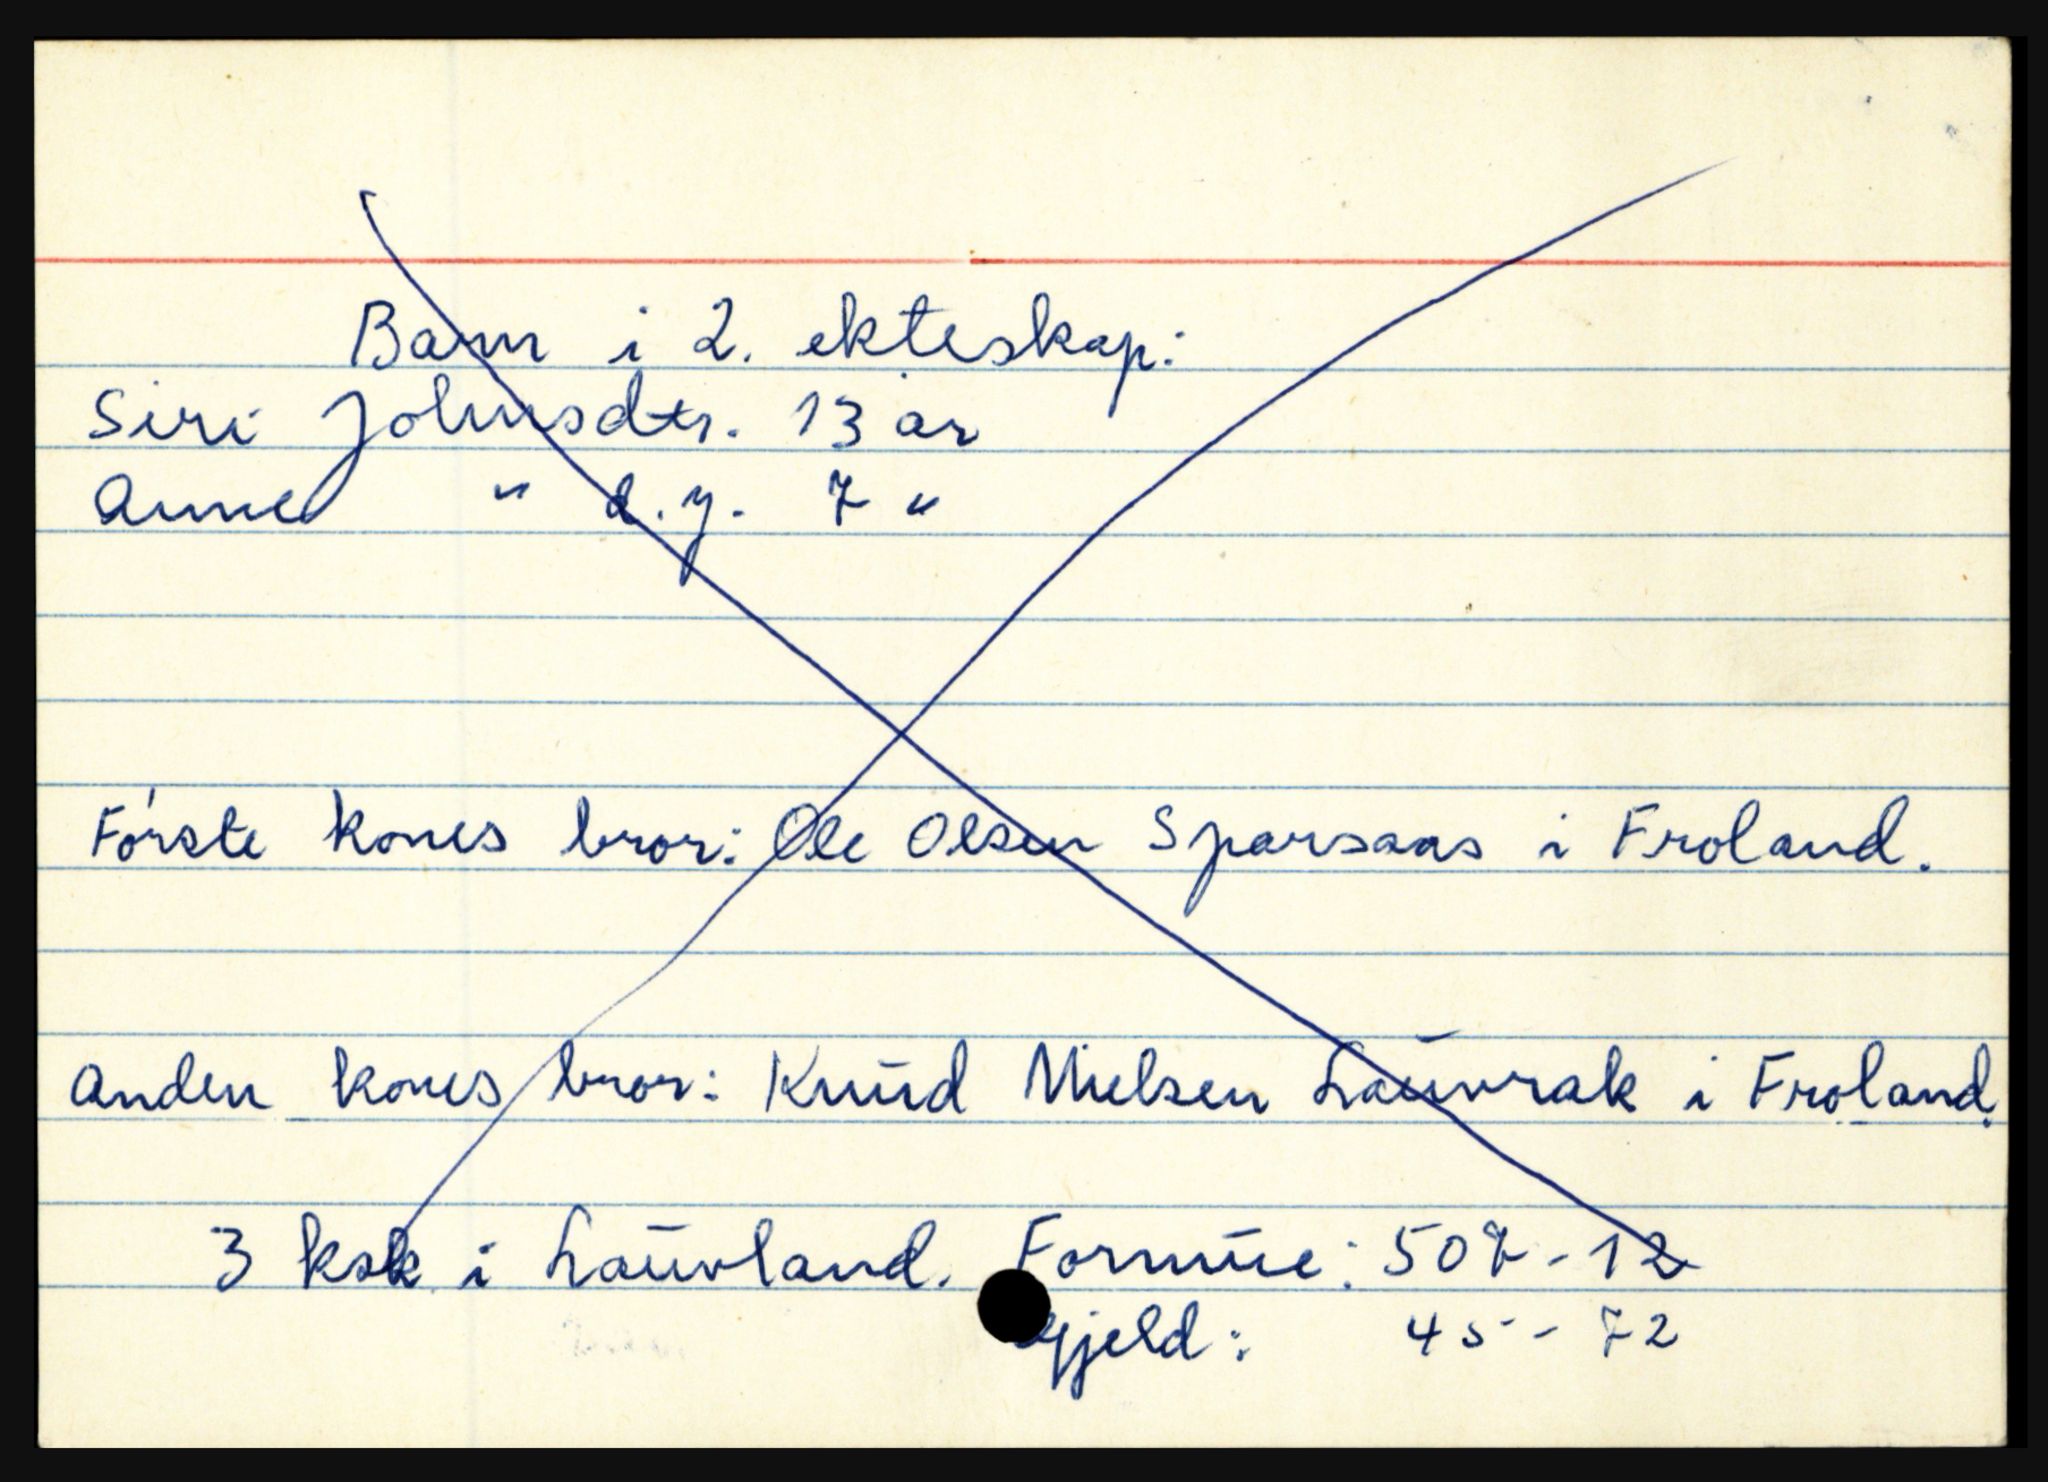 Barn i 2. ekteskap:
Siri Johnsdtr. 13 år
Anne " d.y. 7 "
Første kones bror: Ole Olsen Sparsaas i Froland.
Anden kones bror: Knud Nielsen Lauvrak i Froland.
3 ksk i Lauvland. Formue: 507-12
Gjeld: 45-72